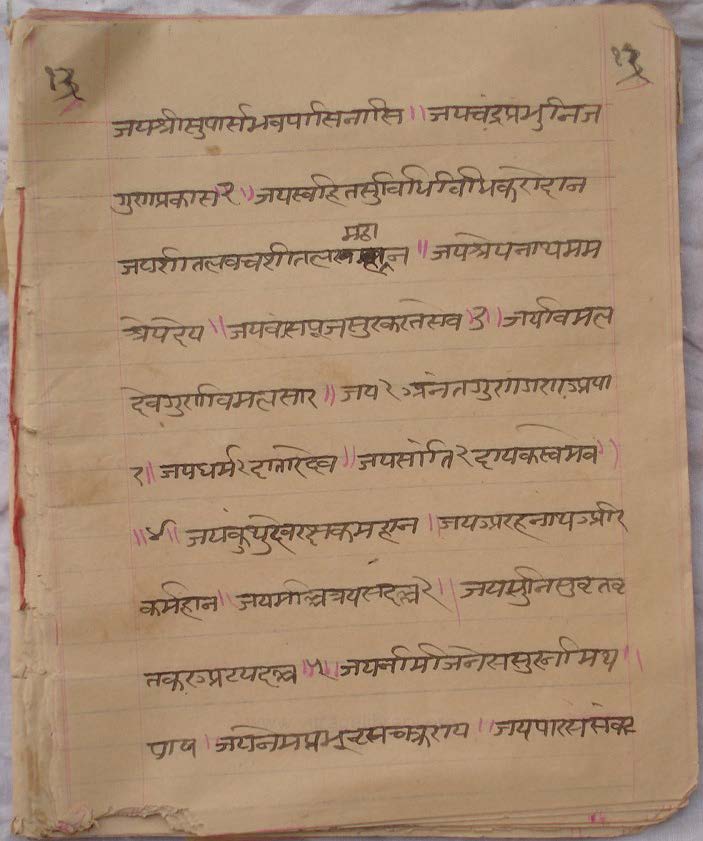 १३ १३
जयश्रीसुपार्सभवपासिनासि॥जयचंद्रप्रभुनिज
गुणप्रकास२॥जयस्वहितसुविधिविधिकरोहान
महा
जयशीतलवचशीतल॥जयश्रेयनाथमम
श्रेयदेय॥जयवासपूजसुरकरतसेव३॥जयविमल
देवगुणविमलसार॥जय२अनंतगुणगणअपा
र॥जयधर्म२दातारदेव॥जयसांति२दायकस्वमेव॥
॥४॥जयकुंथुरक्षकमहान॥जयअरहनाथअरि
कर्महान॥जयमल्लित्रयसल्ल२॥जयमुनिसुव्रतव्र
जयनमिजिनेससुरनमिथ॥
पाय॥जयनेमप्रभूवृषचक्रराय॥जयपारस